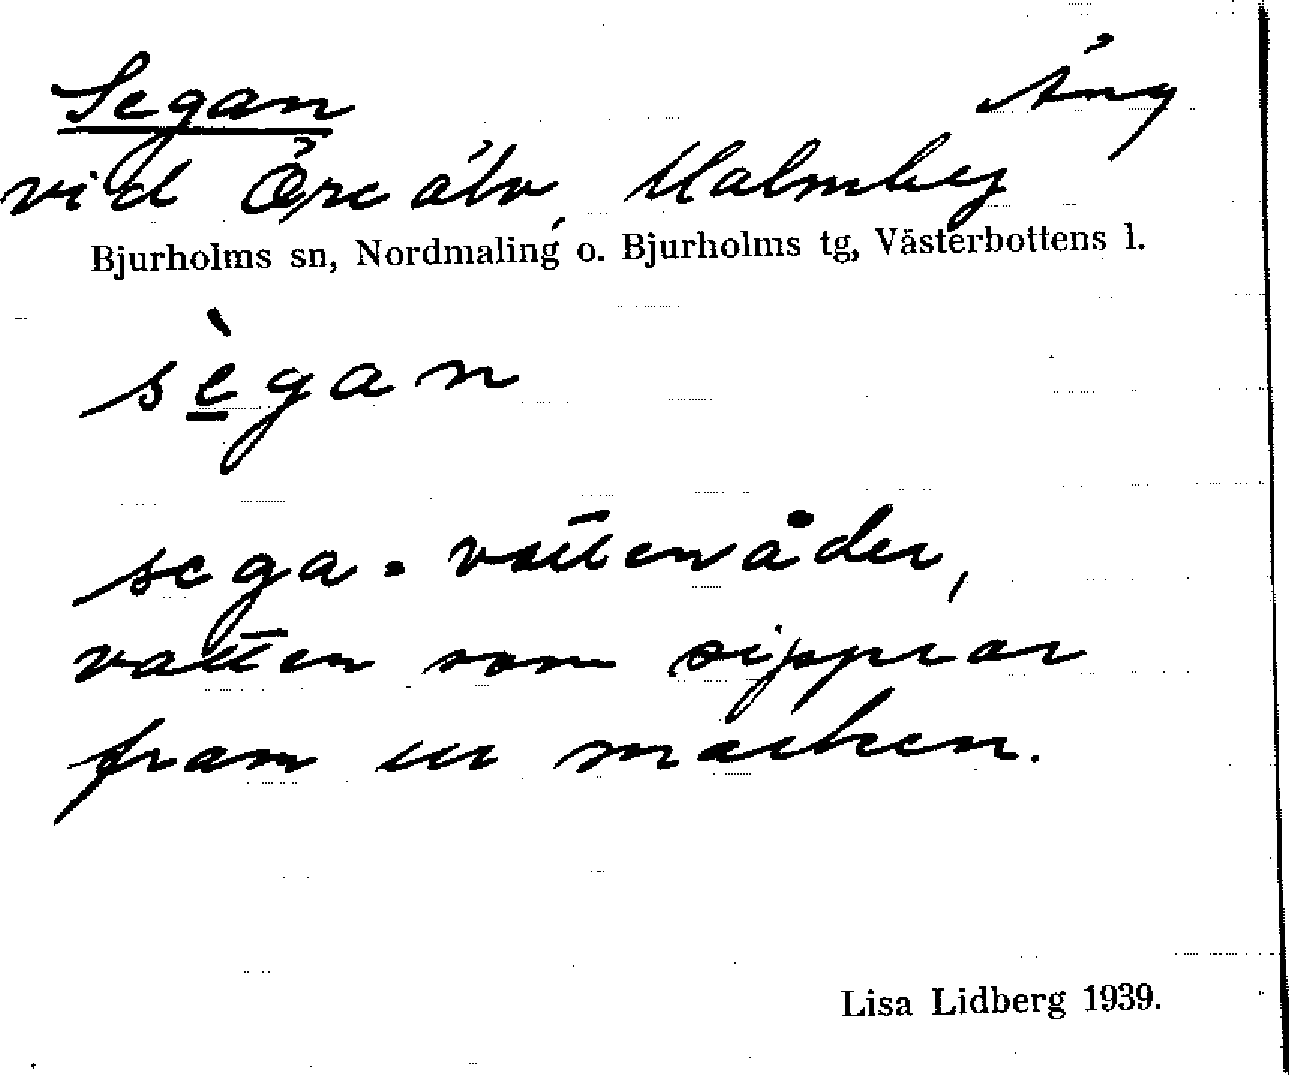 Segan Äng
vid Öre älv, Malmberg
Bjurholms sn, Nordmaling o. Bjurholms tg, Västerbottens l.
sègan
sega = vattenåder,
vatten som sipprar
fram ur marken.
Lisa Lidberg 1939.